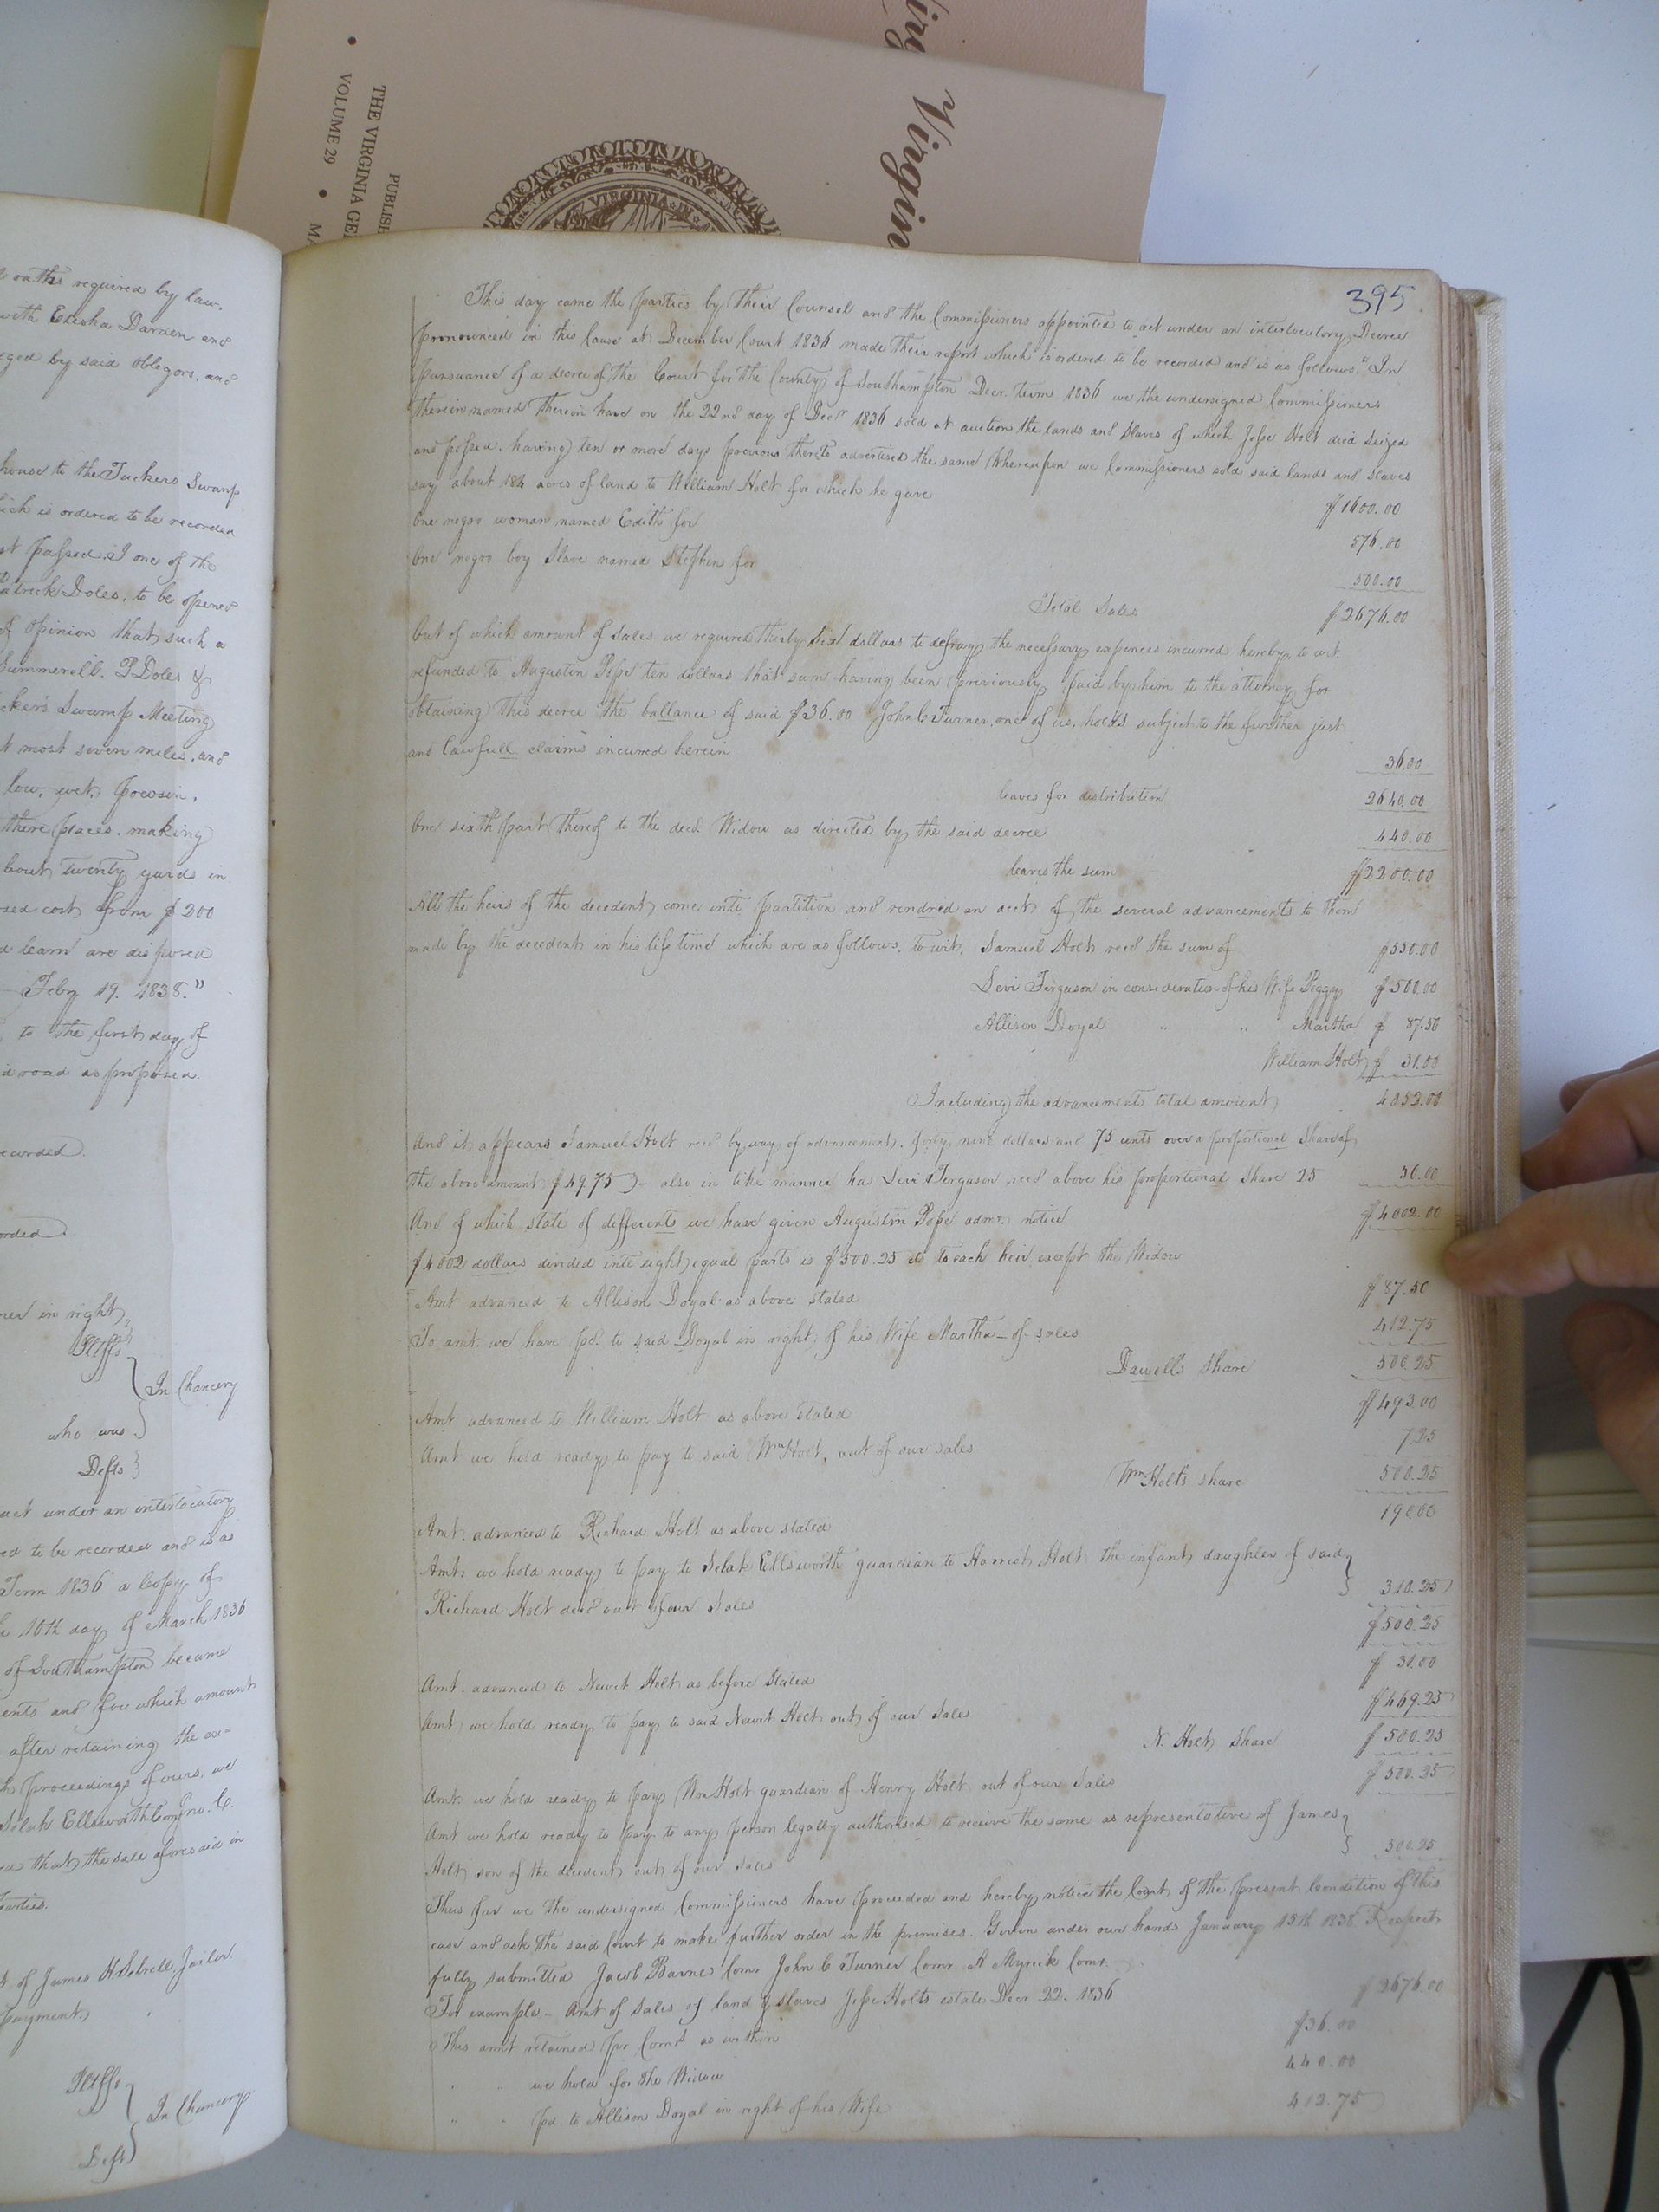 Virgin
THE VIRGINIA GE
VOLUME 29
PUBLISH
VIRGINIA IN
oaths required by law.
with Elisha Darden and
ged by said obligors, and
house to the Tuckers Swamp
ich is ordered to be recorded
st passed. I one of the
Patrick Doles, to be opened
of opinion that such a
Summerell. P Doles &
cker's Swamp Meeting
t most seven miles, and
low, wet, pocosin,
three places. making
bout twenty yards in
sed cost from $200
d learn are disposed
Feby 19. 1838."
to the first day of
d road as proposed.
ecorded.
orded.
ner in right
Pltffs
In Chancery
who was
Defts
act under an interlocutory
ed to be recorded and is as
Term 1836 a Copy of
10th day of March 1836
of Southampton became
ents and for which amount
after retaining the
proceedings of ours, we
Selah Ellsworth
that the sale aforesaid in
Parties.
of James H Sebrell, Jailor
payment.
Pltffs
In Chancery
Deft
395
This day came the parties by their Counsel and the Commissioners appointed to act under an interlocutory Decree
pronounced in this Cause at December Court 1836 made their report which is ordered to be recorded and is as follows. "In
pursuance of a decree of the Court for the County of Southampton Decr. term 1836 we the undersigned Commissioners
therein named therein have on the 22nd day of Decr 1836 sold at auction the lands and slaves of which Jesse Holt died seized
and possed. having ten or more days previous thereto advertised the same Whereupon we Commissioners sold said lands and slaves
say about 184 acres of land to William Holt for which he gave $1600.00
One negro woman named Edith for 576.00
One negro boy slave named Stephen for 500.00
Total Sales $2676.00
Out of which amount of sales we required thirty six dollars to defray the necessary expences incurred hereby, to wit.
refunded to Augustin Pope ten dollars that sum having been previously paid by him to the attorney for
obtaining this decree the ballance of said $36.00 John C Turner, one of us, holds subject to the further just
and lawfull claims incurred herein 36.00
leaves for distribution 2640.00
One sixth part thereof to the decd. Widow as directed by the said decree 440.00
leaves the sum $2200.00
All the heirs of the decedent come into partition and rendred an acct of the several advancements to them
made by the decedent in his life time which are as follows, to wit, Samuel Holt recd the sum of $550.00
Levi Ferguson in consideration of his Wife Peggy $500.00
Allison Doyal " " Martha $ 87.50
William Holt $ 31.00
Including the advancements total amount 4052.00
And it appears Samuel Holt recd by way of advancement, forty nine dollars and 75 cents over a proportional share of
the above amount $49.75) — also in like manner has Levi Ferguson recd above his proportional share 25 50.00
And of which state of differents we have given Augustin Pope admr. notice $4002.00
$4002 dollars divided into eight equal parts is $500.25 to each heir except the Widow
Amt advanced to Allison Doyal as above stated $87.50
To amt. we have pd. to said Doyal in right of his Wife Martha — of sales 412.75
Dawell's share 500.25
Amt advanced to William Holt as above stated $493.00
Amt we hold ready to pay to said Wm Holt, out of our sales 7.25
Wm Holts share 500.25
Amt. advanced to Richard Holt as above stated 190.00
Amt. we hold ready to pay to Selah Ellsworth guardian to Harriet Holt the infant daughter of said
Richard Holt decd out of our Sales 310.25
$500.25
Amt. advanced to Newit Holt as before stated $ 31.00
Amt we hold ready to pay to said Newit Holt out of our Sales $469.25
N. Holt share $500.25
Amt. we hold ready to pay Wm Holt guardian of Henry Holt out of our Sales $500.25
Amt we hold ready to pay to any person legally authorised to receive the same as representative of James
Holt son of the decedent out of our Sales 500.25
Thus far we the undersigned Commissioners have proceeded and hereby notice the Court of the present Condition of this
case and ask the said Court to make further order in the premises. Given under our hands January 15th 1838 Respect-
fully submitted Jacob Barnes Comr John C Turner Comr. A Myrick Comr.
For example — Amt of sales of land & slaves Jesse Holts estate Decr 22. 1836 $2676.00
This amt retained for Comrs as within $36.00
" " we hold for the Widow 440.00
" " pd. to Allison Doyal in right of his Wife 412.75